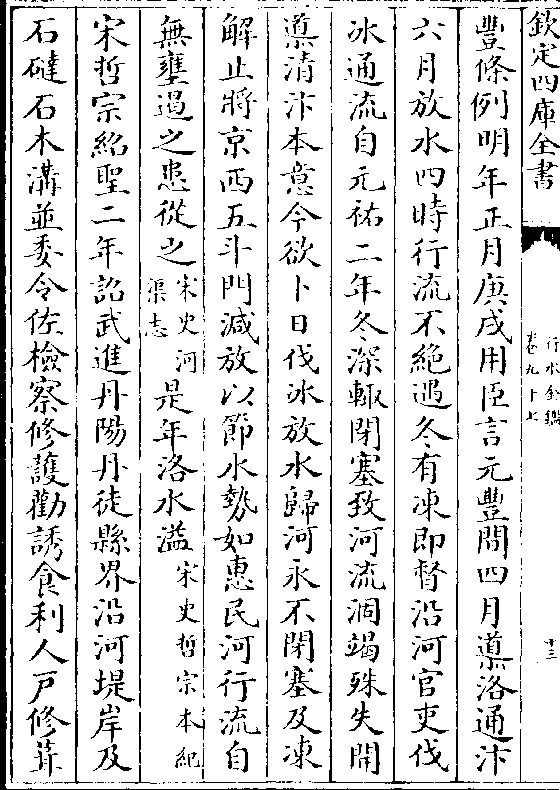 欽定四庫全書
行水金鑑
卷九十七
十三
豐條例明年正月庚戌用臣言元豐間四月導洛通汴
六月放水四時行流不絶遇冬有凍即督沿河官吏伐
冰通流自元祐二年冬深輙閉塞致河流涸竭殊失開
導清汴本意今欲卜日伐冰放水歸河永不閉塞及凍
解止將京西五斗門減放以節水勢如惠民河行流自
無壅遏之患從之宋史河渠志是年洛水溢宋史哲宗本紀
宋哲宗紹聖二年詔武進丹陽丹徒縣界沿河堤岸及
石䃮石木溝並委令佐檢察修護勸誘食利人戸修葺